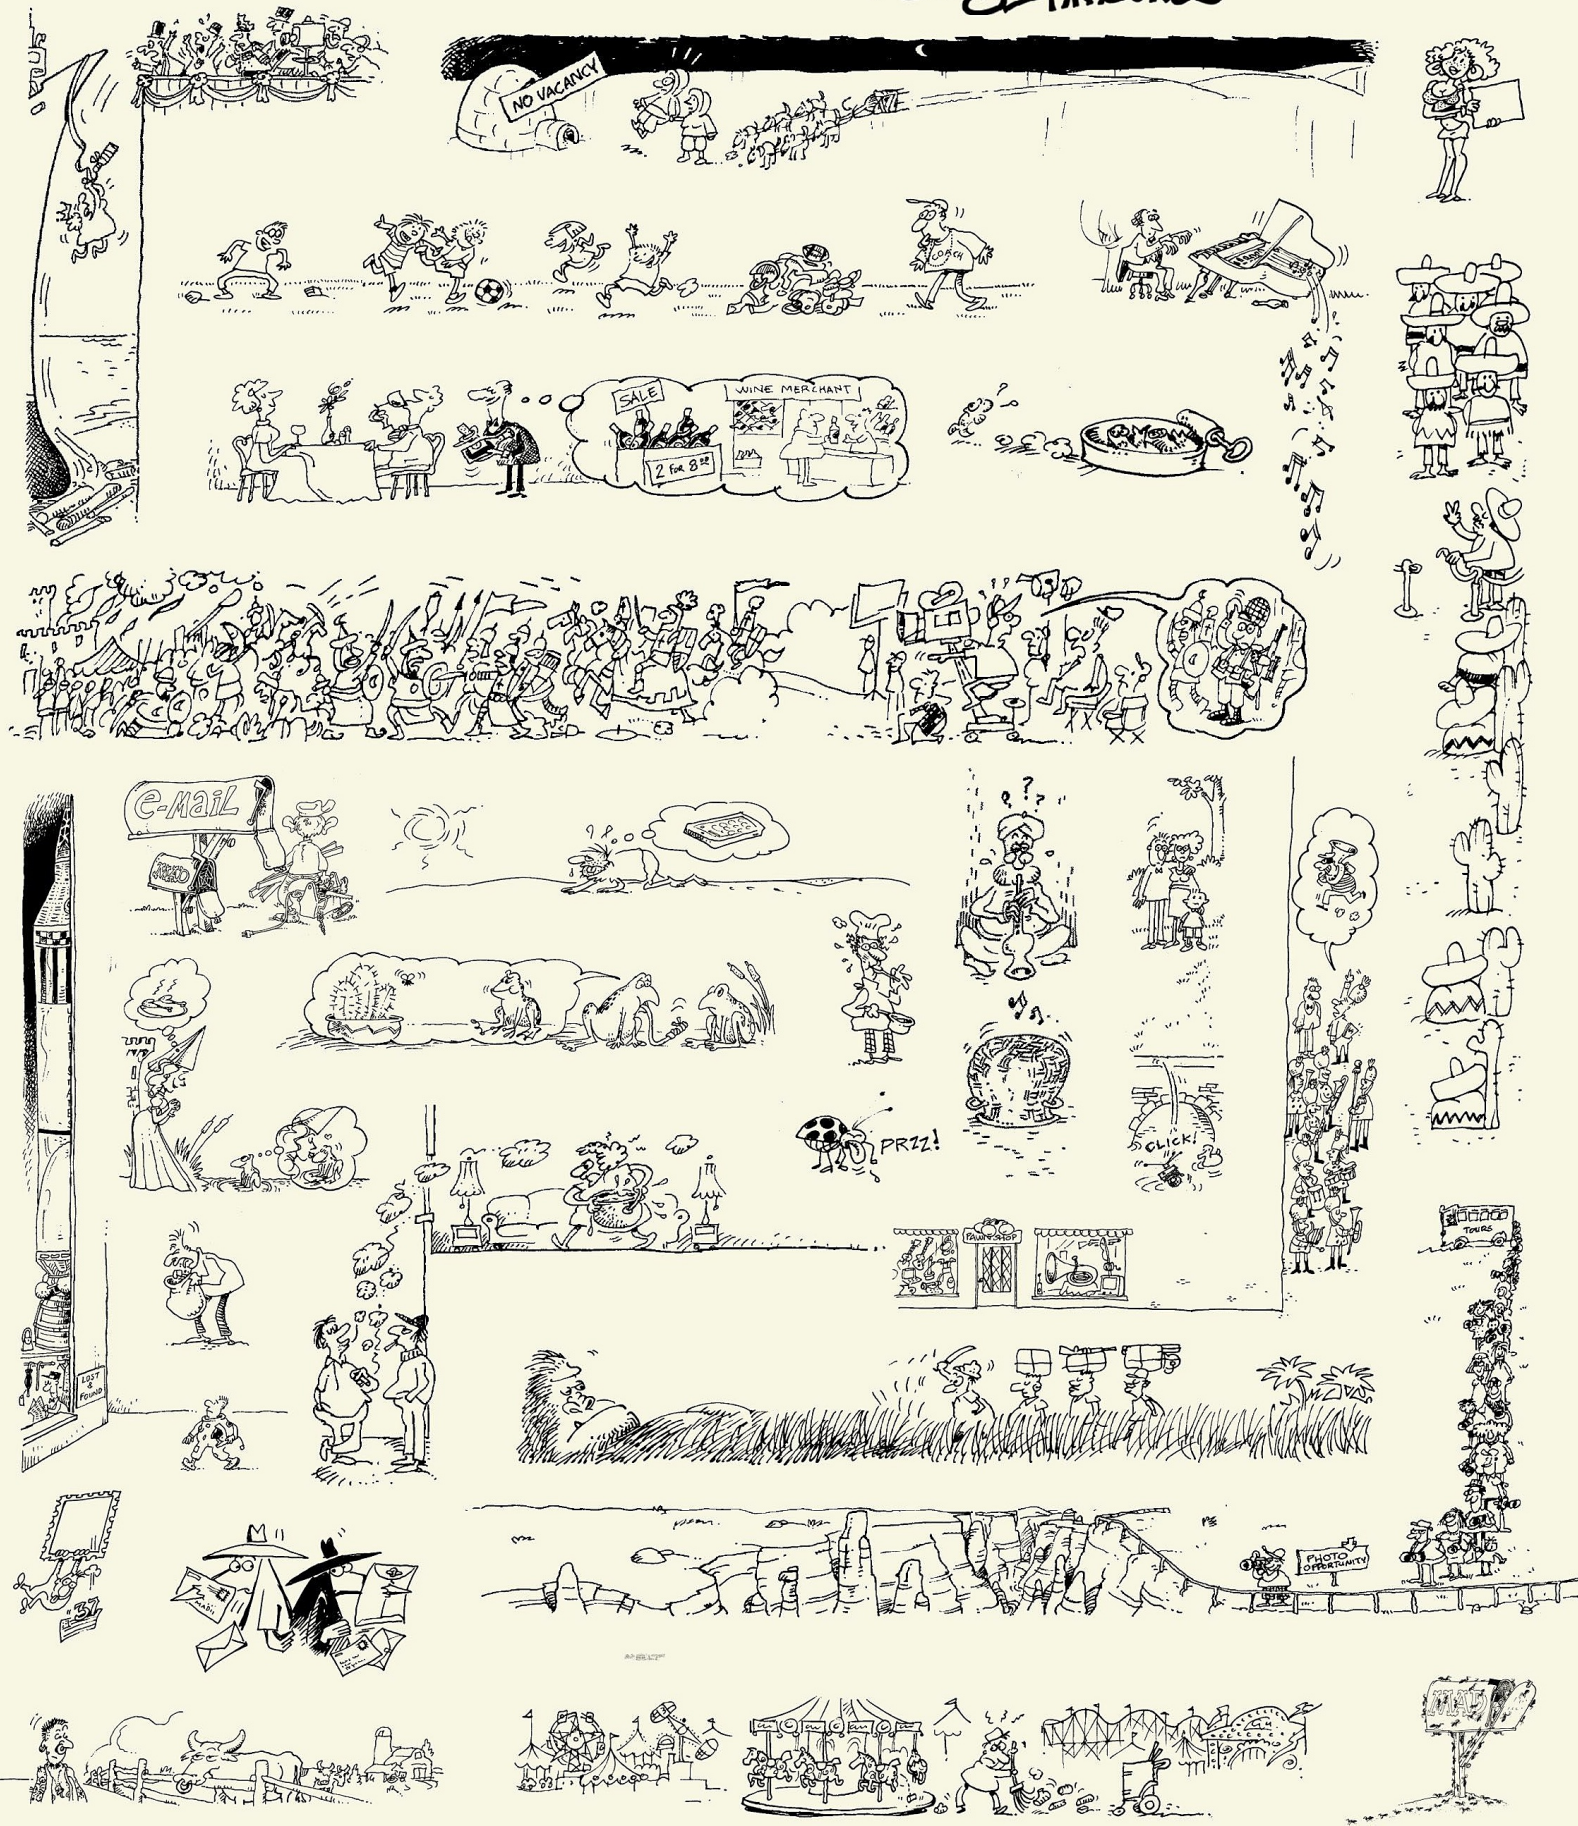 NO VACANCY
COACH
SALE
2 FOR 8
WINE MERCHANT
e-MaiL
PRZZ!
CLICK!
PAWN SHOP
TOURS
LOST
&
FOUND
PHOTO
OPPORTUNITY
37
MAD